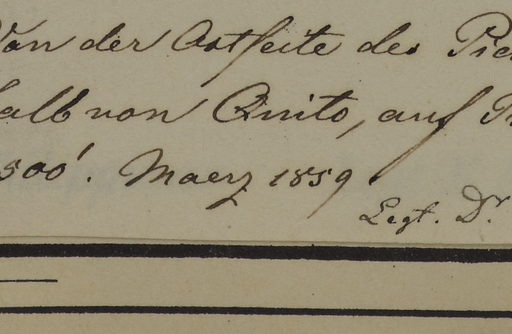 Von der Ostseite des Pic
halb von Quito, auf
500'. Maerz 1859.
Legt. Dr.